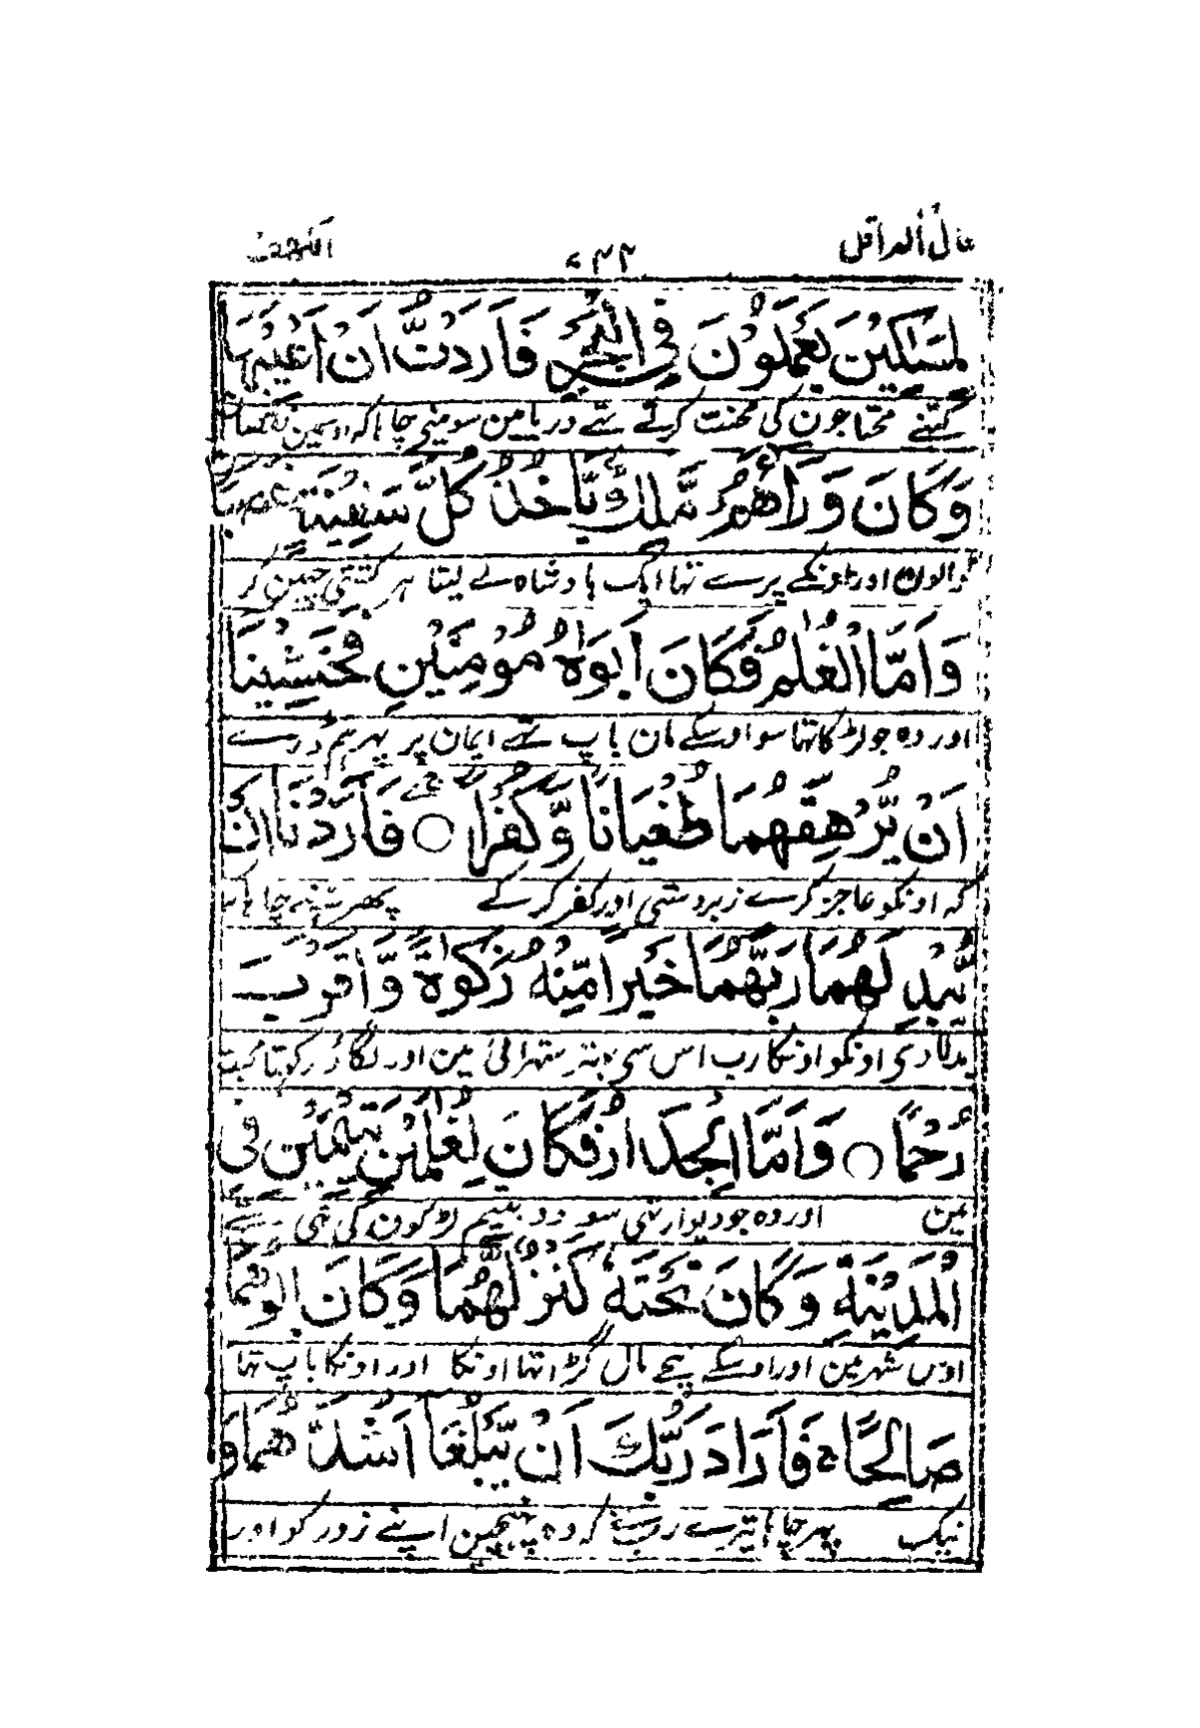 قال ألم اقل
الكهف
لِمَسَاكِيْنَ يَعْمَلُوْنَ فِي الْبَحْرِ فَاَرَدْتُّ اَنْ اَعِيْبَهَا
كتنے محتاجون كى محنت كرتے تہے دريا مين سو مينى چاہا كہ اوسمين
وَكَانَ وَرَاۤءَهُمْ مَّلِكٌ يَّاْخُذُ كُلَّ سَفِيْنَةٍ غَصْبًا
ڈالون اور اونكے پرے تہا ايك بادشاه لے ليتا ہر كشتى چهين كر
وَاَمَّا الْغُلٰمُ فَكَانَ اَبَوٰهُ مُؤْمِنَيْنِ فَخَشِيْنَا
اور ده جو لڑكا تہا سو اوسكے مان باپ تہے ايمان پر پهر ہم ڈرے
اَنْ يُّرْهِقَهُمَا طُغْيَانًا وَّكُفْرًا ○ فَاَرَدْنَا اَنْ
كہ اونكو عاجز كرے زبردستى اور كفر كر كے پهر ہمنے چاہا كہ
يُّبْدِلَهُمَا رَبُّهُمَا خَيْرًا مِّنْهُ زَكٰوةً وَّاَقْرَبَ
بدلا دى اونكو اونكا رب اس سى بہتر ستہرائى مين اور لگاؤ ركہتا محبت
رُحْمًا ○ وَاَمَّا الْجِدَارُ فَكَانَ لِغُلٰمَيْنِ يَتِيْمَيْنِ فِى
مين اور وه جو ديوار تہى سو دو يتيم لڑكون كى تہى
الْمَدِيْنَةِ وَكَانَ تَحْتَهٗ كَنْزٌ لَّهُمَا وَكَانَ اَبُوْهُمَا
اوس شہر مين اور اوسكے نيچے مال گڑا تہا اونكا اور اونكا باپ تہا
صَالِحًا ۚ فَاَرَادَ رَبُّكَ اَنْ يَّبْلُغَاۤ اَشُدَّهُمَا وَ
نيك پهر چاہا تيرے رب نے كہ وه پہنچين اپنے زور كو اور